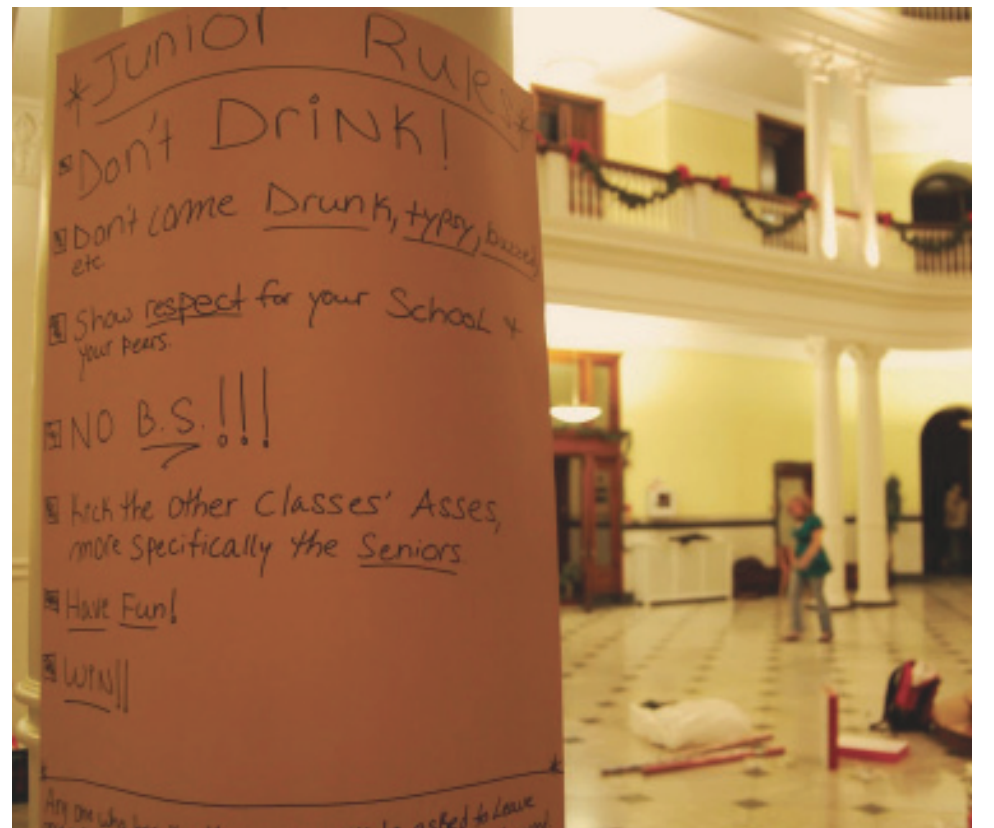 *Junior Rules*
Don't DriNK!
Don't come Drunk, typsy,
etc.
Show respect for your School +
your peers.
NO B.S.!!!
kick the other Classes' Asses,
more specifically the Seniors.
Have Fun!
WIN!!
Any one who asked to Leave